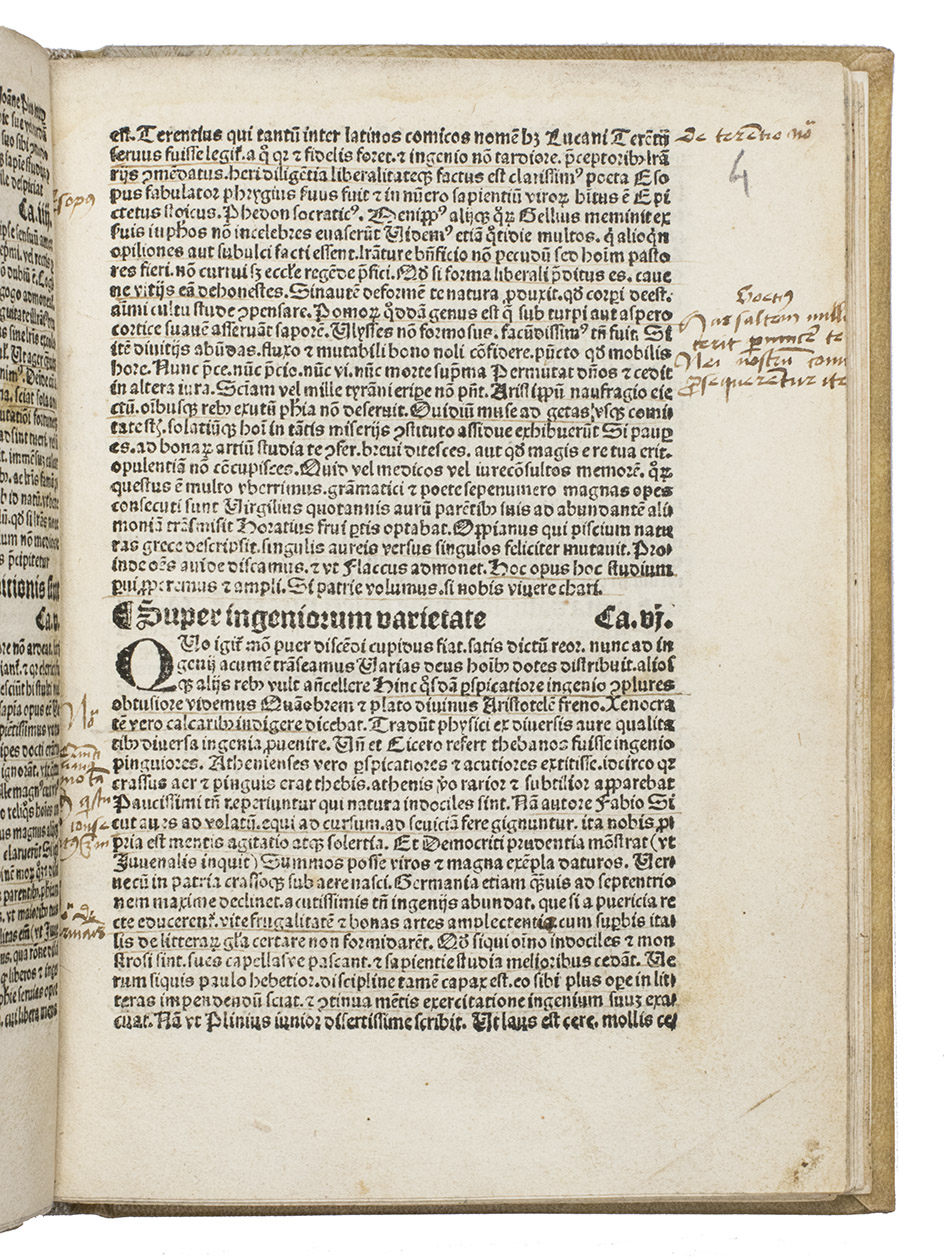 est. Terentius qui tantū inter latinos comicos nomē hꝫ Lucani Terētij
seruus fuisse legiť. a q̊ qꝛ ⁊ fidelis foret. ⁊ ingenio nō tardiore. p̄ceptoribꝰ lrā
rijs ꝯmēdatus. heri diligētia liberalitateqꝫ factus est clarissimꝰ poeta Eso
pus fabulator phrygius ẜuus fuit ⁊ in nūero sapientiū viroꝝ hitus ē Epi
ctetus stoicus. Phedon socraticꝰ. Menippꝰ alijqꝫ q̊ꝝ Gellius meminit ex
suis iuphos nō incelebres euaserūt Uidemꝰ etiā q̊tidie multos. q̇ alioq̇n
opiliones aut subulci facti essent. lrāture bn̄ficio nō pecudū sed hoīm pasto
res fieri. nō curtui sꝫ eccl̄e regēde p̄fici. Qd̓ si forma liberali p̄ditus es. caue
ne vitijs eā dehonestes. Sinautē deformē te natura ꝓduxit. qd̓ corpi deest.
aīmi cultu stude ꝯpensare. Pomoꝝ q̊ddā genus est q̓ sub turpi aut aspero
cortice suauē asseruāt saporē. Ulysses nō formosus. facūdissimꝰ tn̄ fuit. Si
itē diuitijs abūdas. fluxo ⁊ mutabili bono noli cōfidere. pūcto qd̓ mobilis
hore. Nunc p̄ce. nūc p̄cio. nūc vi. nūc morte sup̄ma Permutat dn̄os ⁊ cedit
in altera iura. Sciam vel mille tyrāni eripe nō pn̄t. Aristippū naufragio eie
ctū. oībusqꝫ rebꝰ exutū phīa nō deseruit. Ouidiū muse ad getas vsqꝫ comi
tate sūt. solatiūqꝫ hoī in tātis miserijs ꝯstituto assidue exhibuerūt Si paup
es. ad bonaꝝ artiū studia te ꝯfer. breui ditesces. aut qd̓ magis e re tua erit.
opulentiā nō cōcupisces. Quid vel medicos vel iurecōsultos memorē. q̊ꝝ
questus ē multo vberrimus. grāmatici ⁊ poete sepenumero magnas opes
consecuti sunt Uirgilius quotannis aurū parētibꝰ suis ad abundantē ali
moniā trāsmisit Horatius frui ptis optabat. Oppianus qui piscium natu
ras grece descripsit. singulis aureis versus singulos feliciter mutauit. Pro⸗
inde oēs auide discamus. ⁊ vt Flaccus admonet. Hoc opus hoc studium
pui ꝓperemus ⁊ ampli. Si patrie volumus. si nobis viuere chari.
¶ Super ingeniorum varietate Ca. vj.
QUo igiť mō puer discēdi cupidus fiat. satis dictū reor. nunc ad in
genij acumē trāseamus Uarias deus hoībꝰ dotes distribuit. alios
qꝫ alijs rebꝰ vult añcellere Hinc q̊sdā pspicatiore ingenio ꝯplures
obtusiore videmus Quāobrem ⁊ plato diuinus Aristotelē freno. Xenocra
tē vero calcaribꝰ indigere dicebat. Tradūt physici ex diuersis aure qualita
tibꝰ diuersa ingenia ꝓuenire. Un̄ et Cicero refert thebanos fuisse ingenio
pinguiores. Athenienses vero pspicatores ⁊ acutiores extitisse. idcirco qꝛ
crassus aer ⁊ pinguis erat thebis. athenis ꝟo rarior ⁊ subtilior apparebat
Paucissimi tn̄ reperiuntur qui natura indociles sint. Nā autore Fabio Si
cut aues ad volatū. equi ad cursum. ad seuiciā fere gignuntur. ita nobis ꝓ⸗
pria est mentis agitatio atqꝫ solertia. Et Democriti prudentia mōstrat (vt
Juuenalis inquit) Summos posse viros ⁊ magna exēpla daturos. Uer⸗
uecū in patria crassoqꝫ sub aere nasci. Germania etiam q̄uis ad septentrio
nem maxime declinet. acutissimis tn̄ ingenijs abundat. que si a puericia re
cte educerenť. vite frugalitatē ⁊ bonas artes amplectentia cum supbis ita⸗
lis de litteraꝝ gl̄ia certare non formidarēt. Qd̓ siqui oīno indociles ⁊ mon
strosi sint. sues capellasve pascant. ⁊ sapientie studia melioribus cedāt. Ue
rum siquis paulo hebetior. discipline tamē capax est. eo sibi plus ope in lit⸗
teras impendendū sciat. ⁊ ꝯtinua mētis exercitatione ingenium suuꝫ exa⸗
cuat. Nā vt Plinius iunior disertissime scribit. Ut laus est cere. mollis ce⸗
De terētio nō
4
Boetiꝰ
Ca. iiij.
Ca. v.